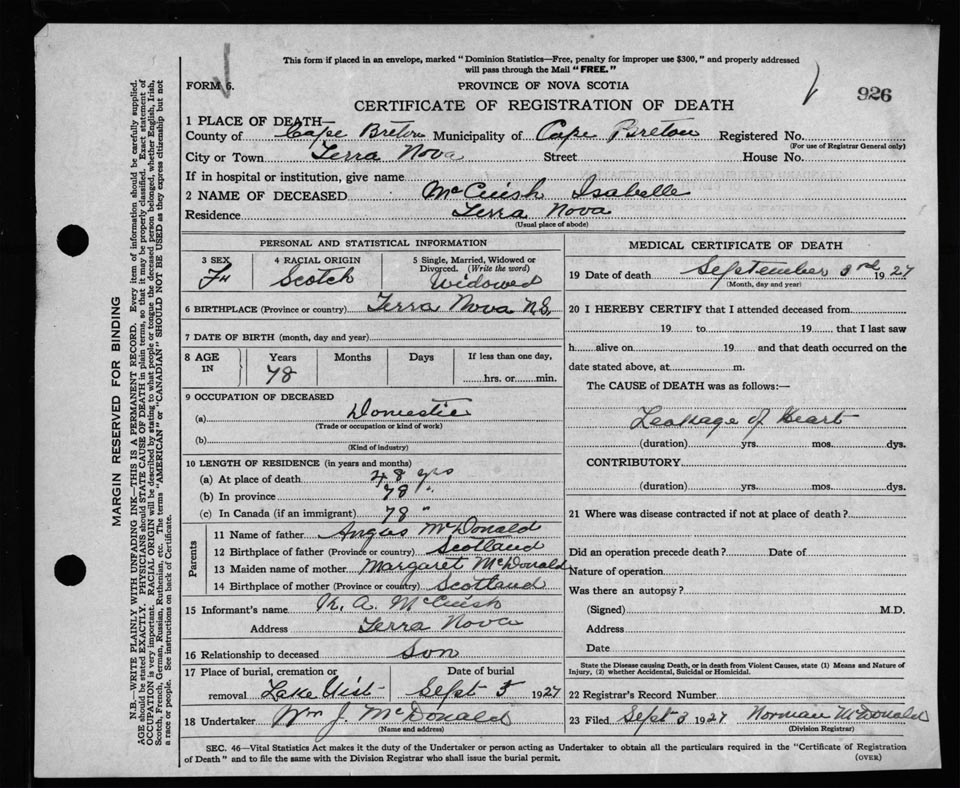 This form if placed in an envelope, marked "Dominion Statistics—Free, penalty for improper use $300," and properly addressed
will pass through the Mail "FREE."
FORM 6.
PROVINCE OF NOVA SCOTIA
926
CERTIFICATE OF REGISTRATION OF DEATH
1 PLACE OF DEATH—
County of Cape Breton Municipality of Cape Breton Registered No.
(For use of Registrar General only)
City or Town Terra Nova Street House No.
If in hospital or institution, give name
2 NAME OF DECEASED McCuish Isabelle
Residence Terra Nova
(Usual place of abode)
PERSONAL AND STATISTICAL INFORMATION
3 SEX 4 RACIAL ORIGIN 5 Single, Married, Widowed or
Divorced. (Write the word)
Scotch Widowed
6 BIRTHPLACE (Province or country) Terra Nova N.S.
7 DATE OF BIRTH (month, day and year)
8 AGE IN Years Months Days If less than one day,
78 hrs. or min.
9 OCCUPATION OF DECEASED
(a) Domestic
(Trade or occupation or kind of work)
(b)
(Kind of industry)
10 LENGTH OF RESIDENCE (in years and months)
(a) At place of death 48 yrs
(b) In province 78 "
(c) In Canada (if an immigrant) 78 "
Parents
11 Name of father Angus McDonald
12 Birthplace of father (Province or country) Scotland
13 Maiden name of mother Margaret McDonald
14 Birthplace of mother (Province or country) Scotland
15 Informant's name A. McCuish
Address Terra Nova
16 Relationship to deceased Son
17 Place of burial, cremation or Date of burial
removal Lake Uist Sept 5 1927
18 Undertaker Wm J. McDonald
(Name and address)
MEDICAL CERTIFICATE OF DEATH
19 Date of death September 3rd 1927
(Month, day and year)
20 I HEREBY CERTIFY that I attended deceased from
19 to 19 , that I last saw
h alive on 19 and that death occurred on the
date stated above, at m.
The CAUSE of DEATH was as follows:—
Leakage of Heart
(duration) yrs. mos. dys.
CONTRIBUTORY
(duration) yrs. mos. dys.
21 Where was disease contracted if not at place of death?
Did an operation precede death? Date of
Nature of operation
Was there an autopsy?
(Signed) M.D.
Address
Date
State the Disease causing Death, or in death from Violent Causes, state (1) Means and Nature of
Injury, (2) whether Accidental, Suicidal or Homicidal.
22 Registrar's Record Number
23 Filed Sept 3 1927 Norman McDonald
(Division Registrar)
SEC. 46—Vital Statistics Act makes it the duty of the Undertaker or person acting as Undertaker to obtain all the particulars required in the "Certificate of Registration
of Death" and to file the same with the Division Registrar who shall issue the burial permit.
(OVER)
MARGIN RESERVED FOR BINDING
N.B.—WRITE PLAINLY WITH UNFADING INK—THIS IS A PERMANENT RECORD. Every item of information should be carefully supplied.
AGE should be stated EXACTLY. PHYSICIANS should STATE CAUSE OF DEATH in plain terms, so that it may be properly classified. Exact statement of
OCCUPATION is very important. RACIAL ORIGIN will be described by stating to what people or tongue the deceased person belonged, whether English, Irish,
Scotch, French, German, Russian, Ruthenian, etc. The terms "AMERICAN" or "CANADIAN" SHOULD NOT BE USED as they express citizenship but not
a race or people. See instructions on back of Certificate.